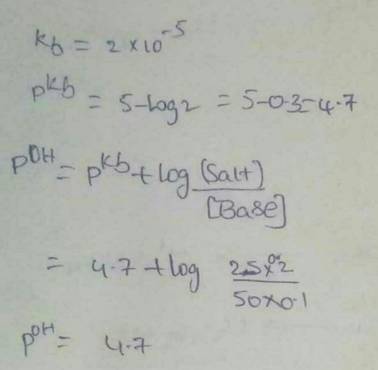 Kb = 2×10⁻⁵
pKb = 5-log2 = 5-0.3=4.7
pOH = pKb+log [Salt]/[Base]
= 4.7+log 25×0.2/50×0.1
pOH = 4.7